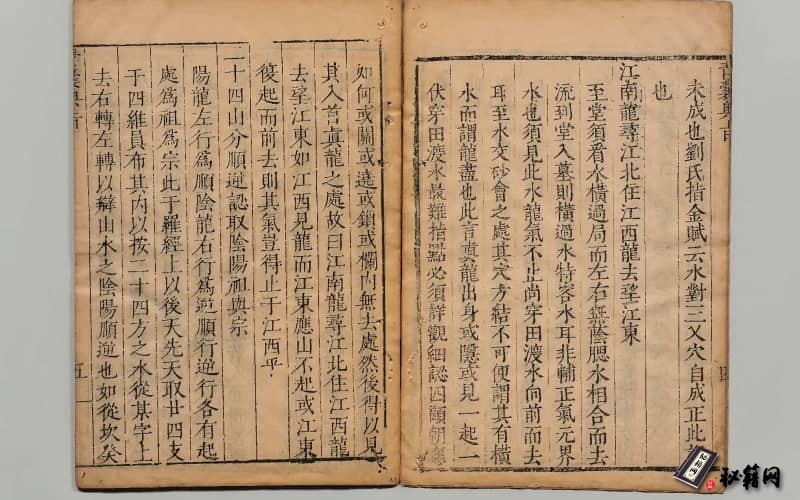 青囊奧旨
四
未成也劉氏指金賦云水對三叉穴自成正此
也
江南龍尋江北住江西龍去望江東
至堂須看水橫過局而左右無蔭腮水相合而去
流到堂入墓則橫過水特客水耳非輔正氣元界
水也須見此水龍氣不止尚穿田渡水向前而去
耳至水交砂會之處其穴方結不可便謂其有橫
水而謂龍盡也此言真龍出身或隱或見一起一
伏穿田渡水最難指點必須詳觀細認四顧朝
如何或關或遶或鎖或欄內無去處然後得以見
其入首真龍之處故曰江南龍尋江北住江西龍
去望江東如江西見龍而江東應山不起或江東
復起而前去則其氣豈得止于江西乎
二十四山分順逆認取陰陽祖與宗
陽龍左行爲順陰龍右行爲逆順行逆行各有起
處爲祖爲宗此于羅經上以後天先天取廿四支
于四維員布其內以按二十四方之水從其字上
去右轉左轉以辯山水之陰陽順逆也如從坎癸
五
秘籍网